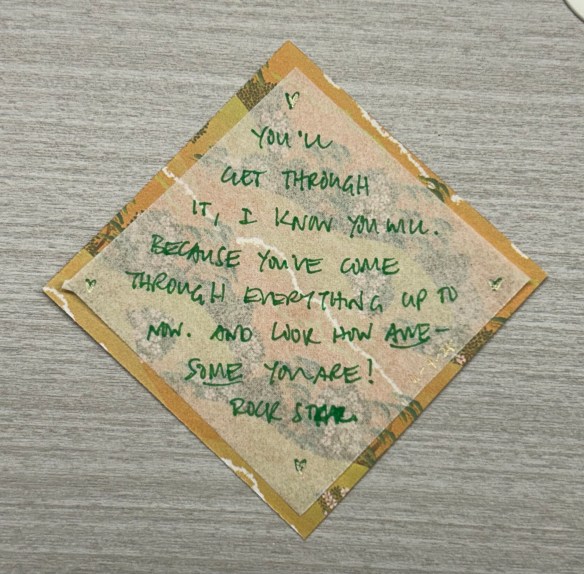 YOU'LL
GET THROUGH
IT, I KNOW YOU WILL.
BECAUSE YOU'VE COME
THROUGH EVERYTHING UP TO
NOW. AND LOOK HOW AWE-
SOME YOU ARE!
ROCK STAR.